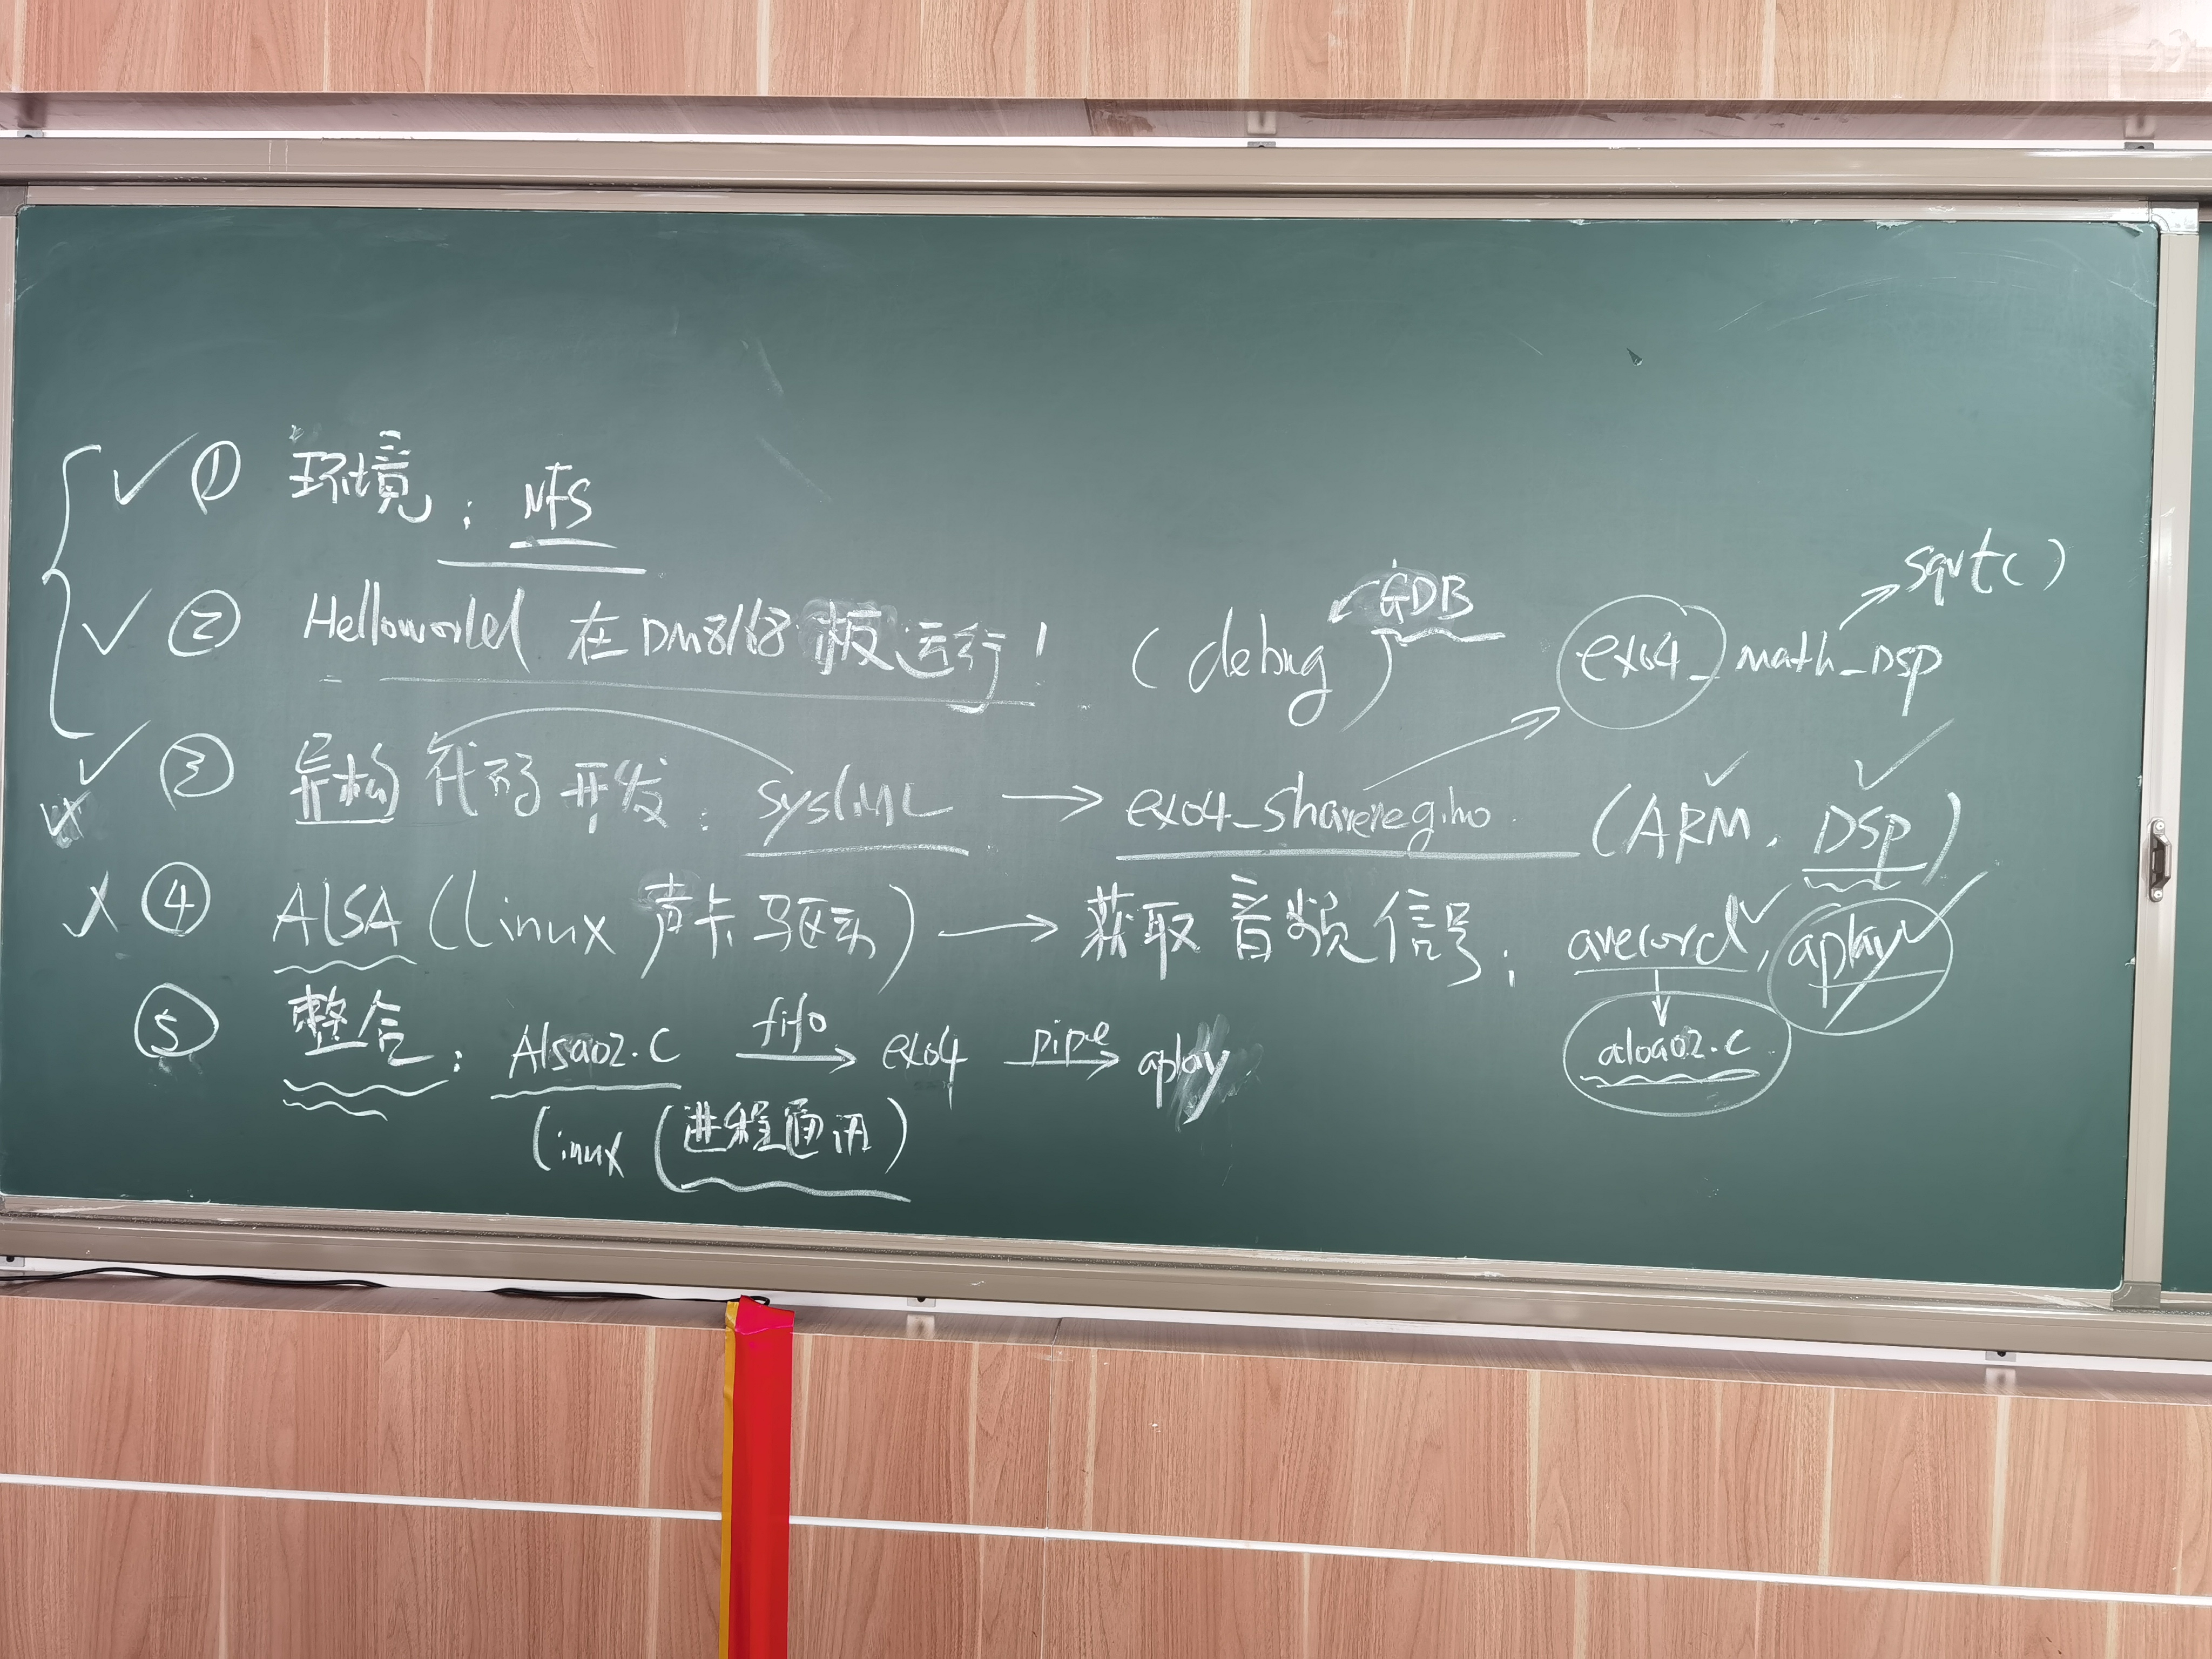 ① 环境: NFS
② Helloworld 在DM8168板运行! (debug) GDB
ex04_math_DSP sqrt()
③ 异构代码开发: syslink → ex04_shareregion (ARM, DSP)
④ ALSA (linux 声卡驱动) → 获取音频信号; arecord, aplay
alsa02.c
⑤ 整合: Alsa02.C fifo ex04 pipe aplay
linux (进程通讯)